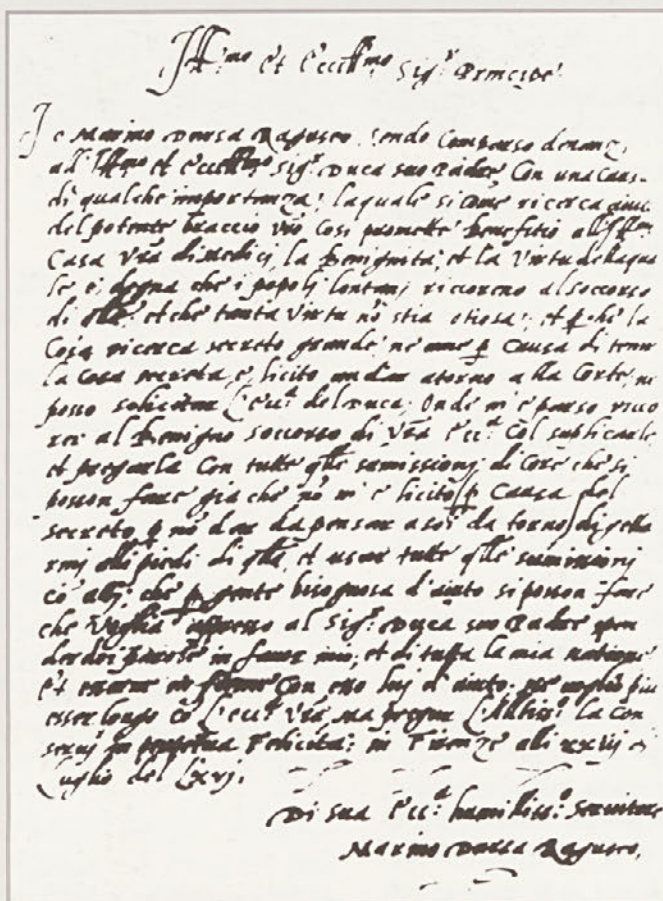 Ill.mo et Ecc.mo Sig.r Principe
Io Marino Darsa Raguseo, sendo Comparso denanzi
all'Ill.mo et Ecc.mo Sig.r Duca suo Padre, Con una Caus
di qualche importanza; laquale si come ricerca aiuto
del potente braccio vro Cosi promette Benefitio all'Ill.ma
Casa Vra di medici, la Benignita, et la Virtu de laqua
le e degna che i popoli lontani ricoreno al soccorso
di qlla, et che tanta Virtu nō stia otiosa; et p che la
Cosa ricerca secreto grande; ne a me p Causa di tener
la Cosa secreta, e licito andar atorno a lla Corte, ne
posso solicitar l'ecc.a del Duca; Onde m'e parso rico
rer al Benigno soccorso di Vra Ecc.a Col suplicarle
et pregarla Con tutte qlle summissionj di Core che si
posson fare gia che nō m'e licito (p Causa del
secreto p nō dar da pensar a soi da torno) di getta
rmj alli piedi di qlla, et usar tutte qlle summissionj
cō che p gente bisognosa d'aiuto si posson fare
che Voglia appresso al Sig.r Duca suo Padre spen
der doi parole in favor mio, et di tutta la mia natione
et con esso luj d'aiuto. ne voglio piu
esser longo cō l'ecc.a Vra, ma prego l'Altiss.o la Con
servj in perpetua Felicita: in Firenze alli xxiij di
Luglio del Lxvj.
Di sua Ecc.a humiliss.o Servitore
Marino Darsa Raguseo,